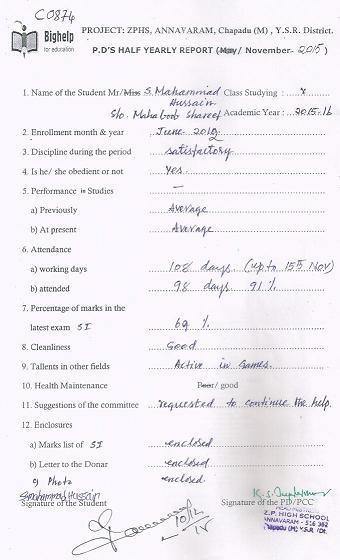 C0874
Bighelp
for education
PROJECT: ZPHS, ANNAVARAM, Chapadu (M) , Y.S.R. District.
P.D'S HALF YEARLY REPORT (May/ November- 2015)
1. Name of the Student Mr/Miss S. Mahammad Class Studying : X
Hussain
S/o. Mahaboob Shareef Academic Year : 2015-16
2. Enrollment month & year June-2012
3. Discipline during the period satisfactory
4. Is he/ she obedient or not yes.
5. Performance in Studies —
a) Previously Average
b) At present Average
6. Attendance
a) working days 108 days. (upto 15th Nov)
b) attended 98 days 91 %
7. Percentage of marks in the
latest exam SI 69 %
8. Cleanliness Good
9. Tallents in other fields Active in Games.
10. Health Maintenance Poor/ good
11. Suggestions of the committee requested to continue the help.
12. Enclosures
a) Marks list of SI enclosed
b) Letter to the Donar enclosed
c) Photo enclosed
S. mahammad Hussain
Signature of the Student Signature of the PD/PCC
10/12
Z.P. HIGH SCHOOL
ANNAVARAM - 516 362
Chapadu (M) Y.S.R. Dt.